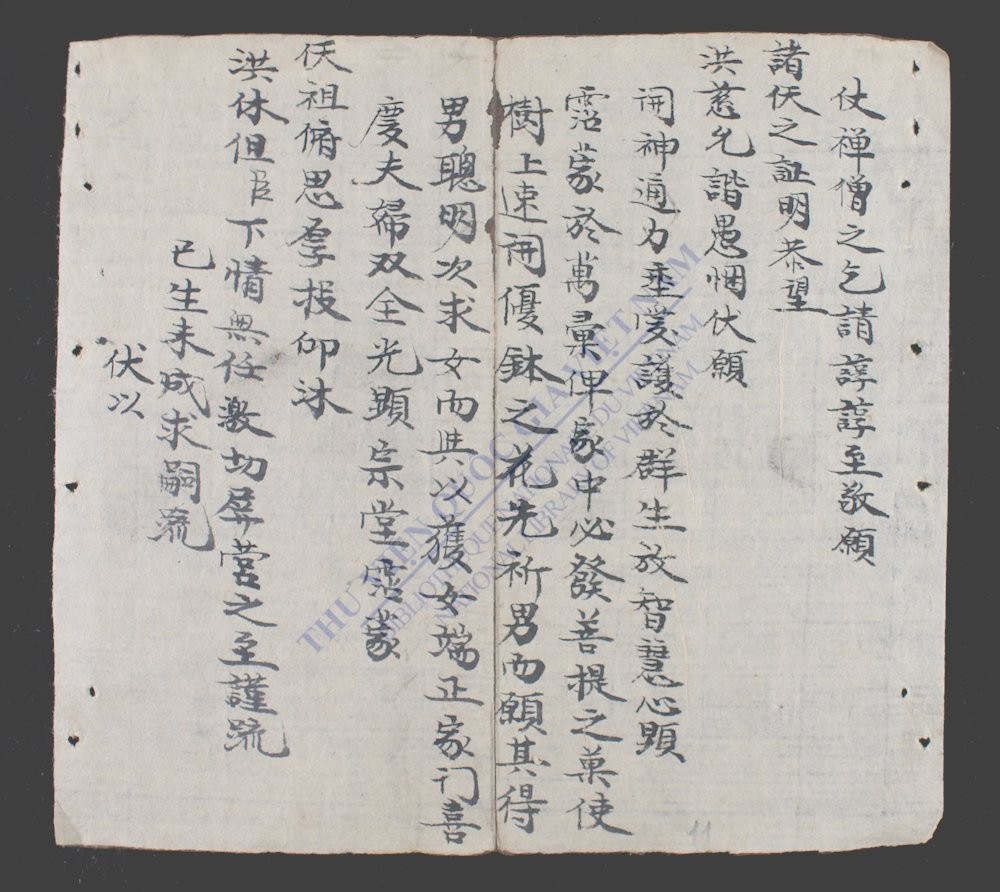 仗禪僧之乞請諄諄至敬願
諸仸之証明恭望
洪慈允諧愚悃伏願
開神通力垂愛護於群生放智慧心顕
霑蒙於萬彙俾家中必發菩提之菓使
樹上速開優鉢之花先祈男而願其得
男聰明次求女而其以獲女端正家门喜
慶夫婦双全光顕宗堂霑蒙
仸祖俯思孕投仰沐
洪休但臣下情無任激切屏营之至謹疏
已生未成求嗣疏
伏以
THƯ VIỆN QUỐC GIA VIỆT NAM
BIBLIOTHÈQUE NATIONALE DU VIETNAM
NATIONAL LIBRARY OF VIETNAM
11